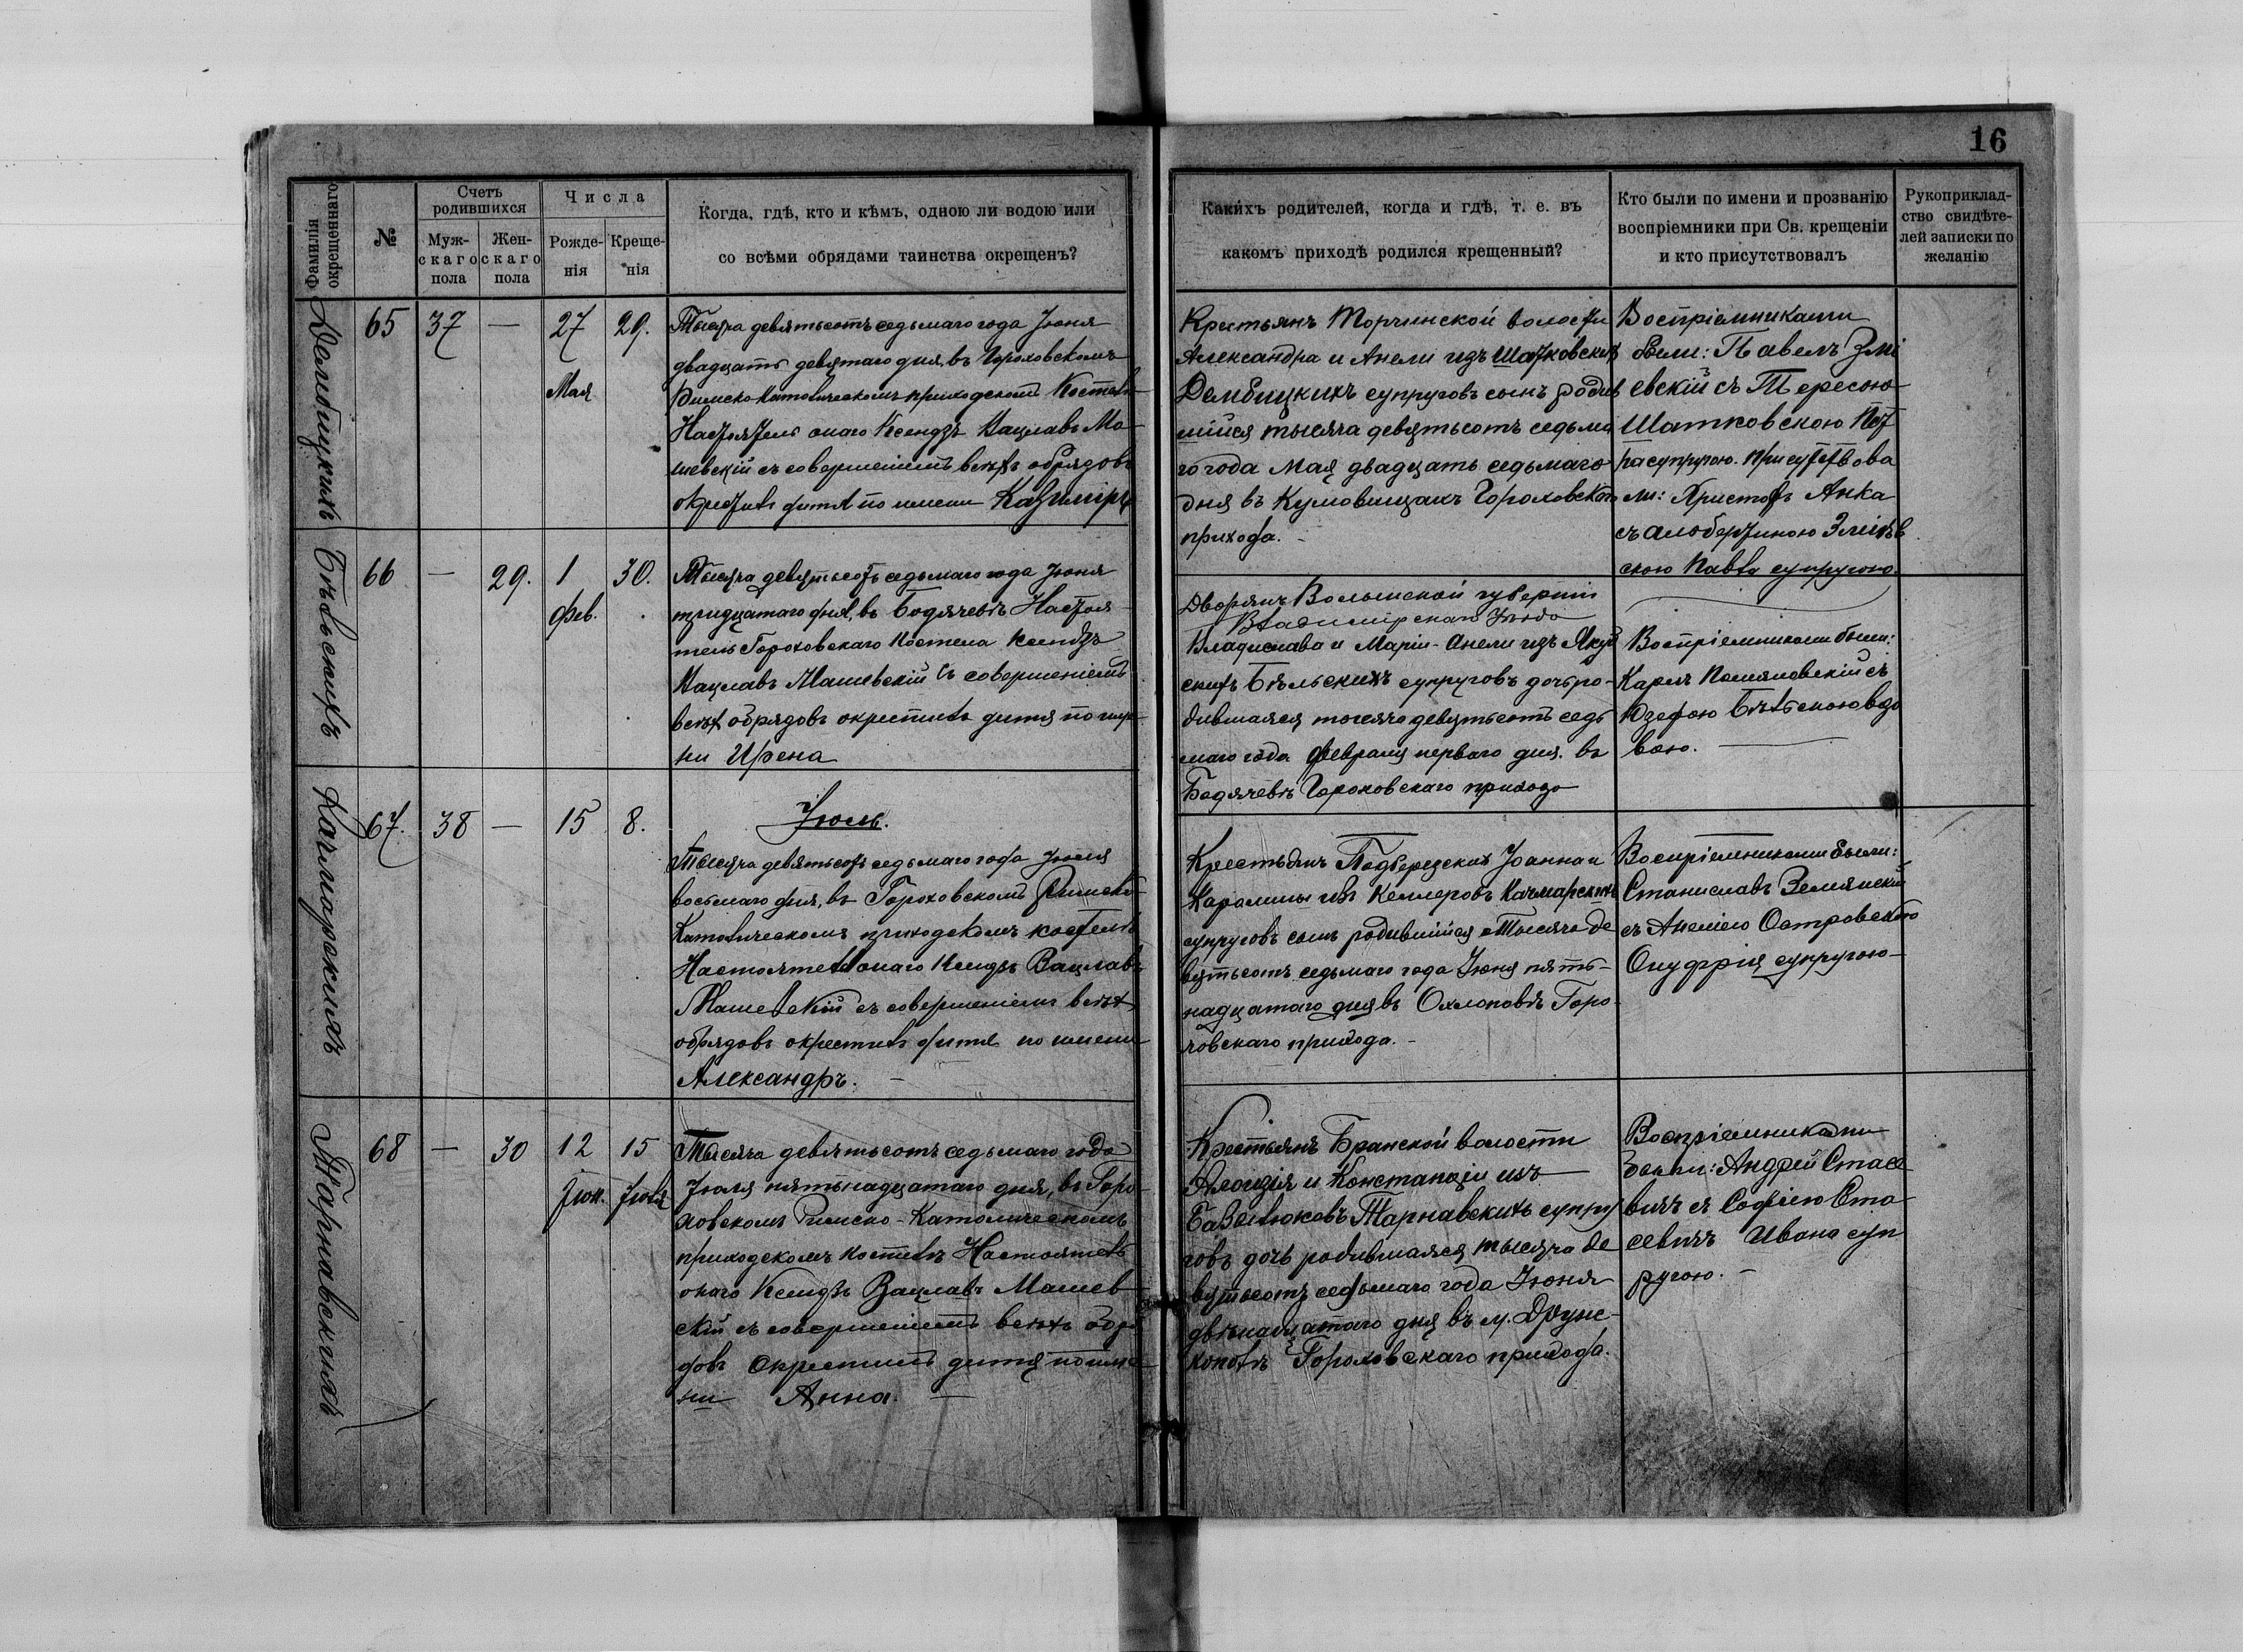 16
Фамилія окрещеннаго
№
Счетъ родившихся
Муж-скаго пола
Жен-скаго пола
Числа
Рожде-нія
Креще-нія
Когда, гдѣ, кто и кѣмъ, одною ли водою или
со всѣми обрядами таинства окрещенъ?
Какихъ родителей, когда и гдѣ, т. е. въ
какомъ приходѣ родился крещенный?
Кто были по имени и прозванію
воспріемники при Св. крещеніи
и кто присутствовалъ
Рукоприклад-
ство свидѣте-
лей записки по
желанію
Дембицкихъ
65 37 — 27 29.
Мая
Тысяча девятьсотъ седьмаго года Іюня
двадцать девятаго дня, въ Гороховскомъ
Римско-Католическомъ приходскомъ Костелѣ
Настоятель онаго Ксендзъ Вацлавъ Ма-
шевскій съ совершеніемъ всѣхъ обрядовъ
окрестилъ дитя по имени Казиміръ
Крестьянъ Торчинской волости
Александра и Анели изъ Шатковскихъ
Дембицкихъ супруговъ сынъ родив
шійся тысяча девятьсотъ седьма
го года Мая двадцать седьмаго
дня въ Гороховскаго
прихода.
Воспріемниками
были: Павелъ Змі
евскій съ Тересою
Шатковскою Пет
ра супругою. Присутствова
ли: Христофъ Анка
съ Альбертиною Зміев
скою Павла супругою.
Бѣльскихъ
66 — 29. 1 30.
Фев.
Тысяча девятьсотъ седьмаго года Іюня
тридцатаго дня, въ Бодячевѣ Настоя
тель Гороховскаго Костела Ксендзъ
Вацлавъ Машевскій съ совершеніемъ
всѣхъ обрядовъ окрестилъ дитя по име-
ни Ирена
Дворянъ Волынской губерніи
Владимірскаго Уѣзда
Владислава и Маріи-Анели изъ
скихъ Бѣльскихъ супруговъ дочь ро-
дившаяся тысяча девятьсотъ седь
маго года Февраля перваго дня. въ
Бодячевѣ Гороховскаго прихода
Воспріемниками были:
Карлъ съ
Юзефою Бѣльскою вдо
вою.
Качмарскихъ
67. 38 — 15 8.
Іюль.
Тысяча девятьсотъ седьмаго года Іюля
восьмаго дня, въ Гороховскомъ Римско-
Католическомъ приходскомъ костелѣ
Настоятель онаго Ксендзъ Вацлавъ
Машевскій съ совершеніемъ всѣхъ
обрядовъ окрестилъ дитя по имени
Александръ.
Крестьянъ Іоанна и
Каролины изъ Келлеровъ Качмарскихъ
супруговъ сынъ родившійся Тысяча де
вятьсотъ седьмаго года Іюня пять-
надцатаго дня въ Охлоповѣ Горо-
ховскаго прихода.
Воспріемниками были:
Станиславъ Землянскій
съ Анелею Островскою
Онуфрія супругою
Тарнавскихъ
68 — 30 12 15
Іюн. Іюля
Тысяча девятьсотъ седьмаго года
Іюля пятьнадцатаго дня, въ Горо-
ховскомъ Римско-Католическомъ
приходскомъ костелѣ Настоятель
онаго Ксендзъ Вацлавъ Машев
скій съ совершеніемъ всѣхъ обря
довъ окрестилъ дитя по име
ни Анна.
Крестьянъ Бранской волости
Алоизія и Констанціи изъ
Базелюковъ Тарнавскихъ супру
говъ дочь родившаяся тысяча де
вятьсотъ седьмаго года Іюня
двѣнадцатаго дня въ м. Друж-
кополѣ Гороховскаго прихода.
Воспріемниками
были: Андрей Стасе
вичъ съ Софіею Ста
севичъ Ивана суп
ругою.